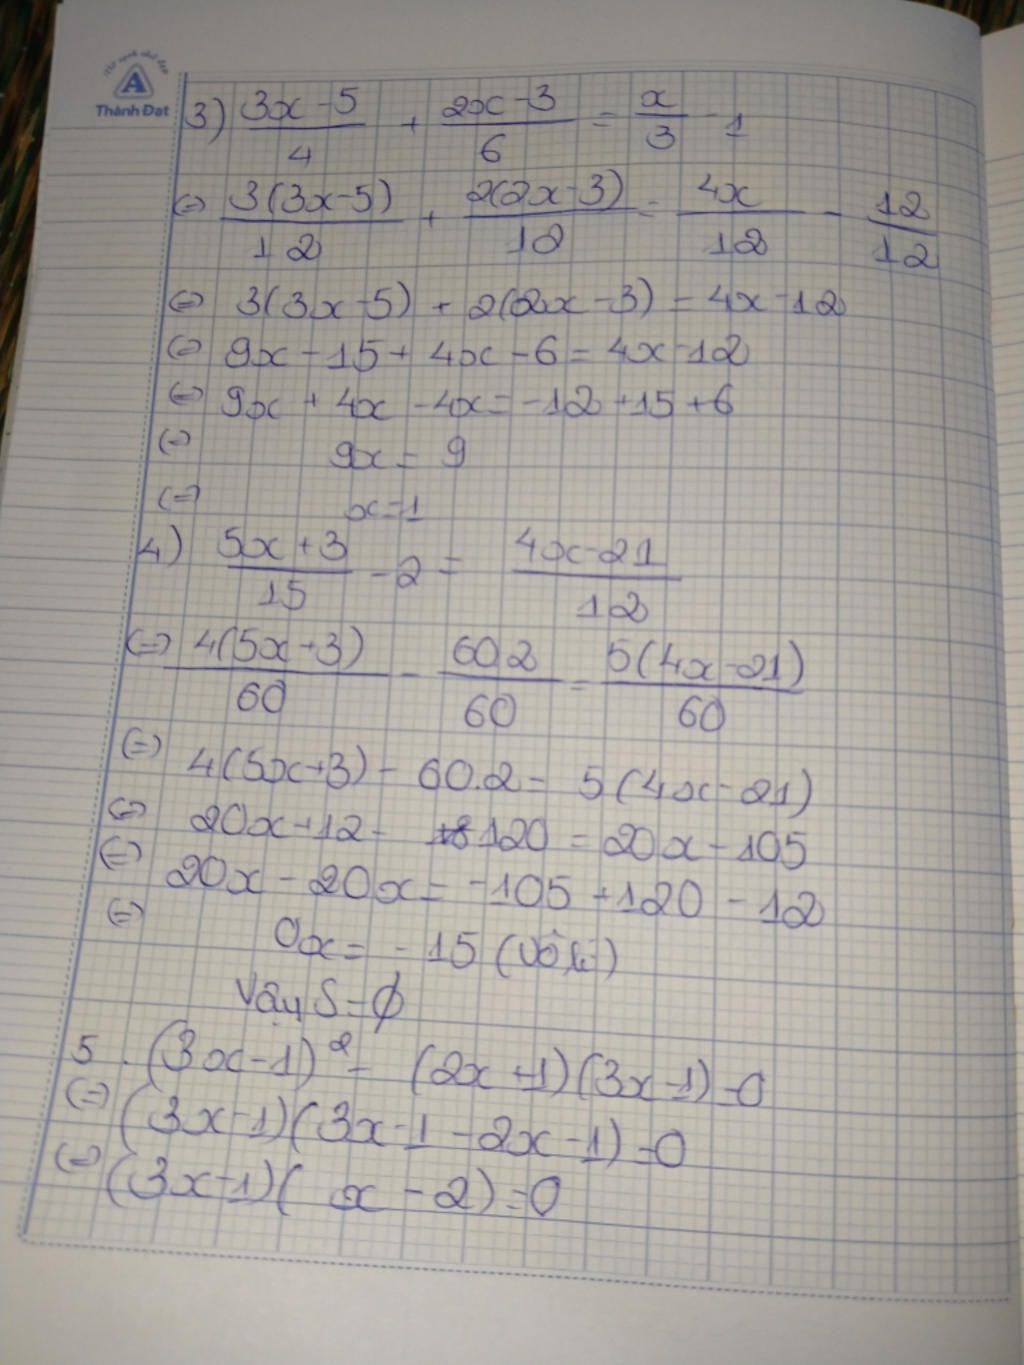 Vở sạch chữ đẹp
A
Thành Đạt
3) (3x-5)/4 + (2x-3)/6 = x/3 - 1
(=) 3(3x-5)/12 + 2(2x-3)/12 = 4x/12 - 12/12
(=) 3(3x-5) + 2(2x-3) = 4x-12
(=) 9x-15+4x-6=4x-12
(=) 9x+4x-4x=-12+15+6
(=) 9x=9
(=) x=1
4) (5x+3)/15 - 2 = (4x-21)/12
(=) 4(5x+3)/60 - 60.2/60 = 5(4x-21)/60
(=) 4(5x+3)-60.2=5(4x-21)
(=) 20x+12-120=20x-105
(=) 20x-20x=-105+120-12
(=) 0x=-15 (Vô lí)
Vậy S=∅
5. (3x-1)²-(2x+1)(3x-1)=0
(=) (3x-1)(3x-1-2x-1)=0
(=) (3x-1)(x-2)=0